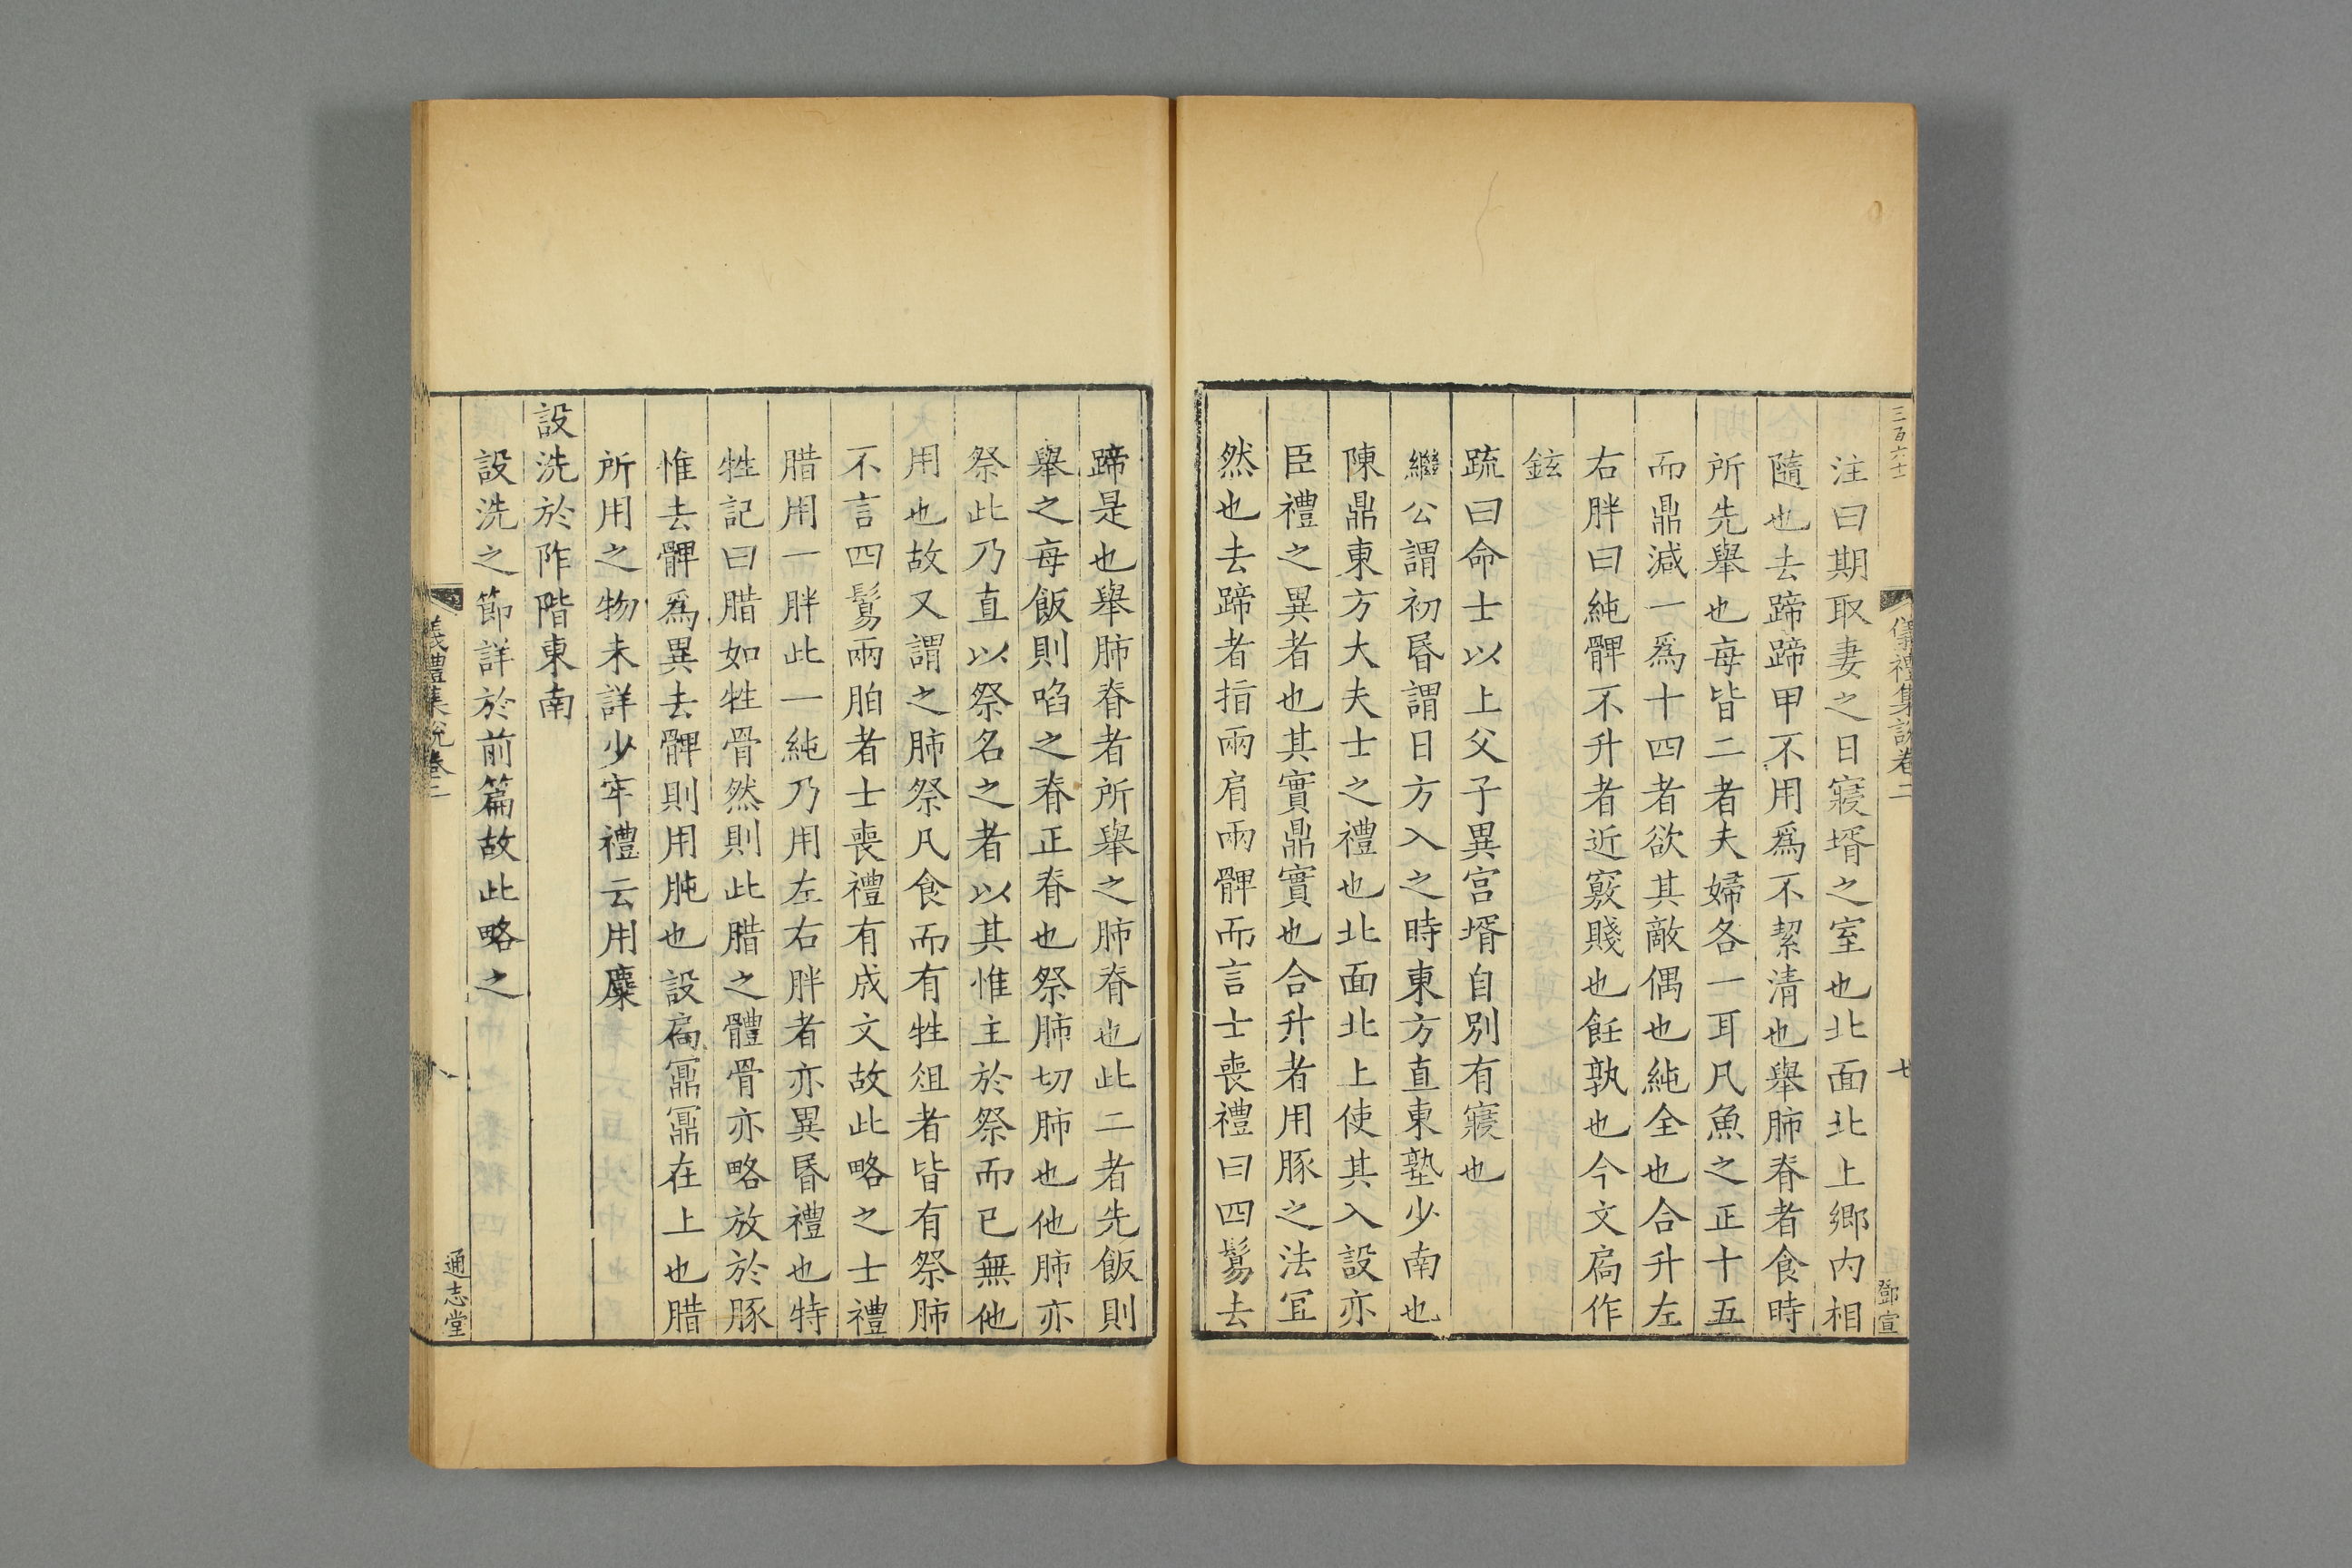 三百六十一
儀禮集說卷二
七
鄧宣
注曰期取妻之日寢壻之室也北面北上鄉内相
隨也去蹄蹄甲不用爲不絜清也舉肺脊者食時
所先舉也每皆二者夫婦各一耳凡魚之正十五
而鼎減一爲十四者欲其敵偶也純全也合升左
右胖曰純髀不升者近竅賤也飪孰也今文扃作
鉉
疏曰命士以上父子異宫壻自別有寢也
繼公謂初昏謂日方入之時東方直東塾少南也
陳鼎東方大夫士之禮也北面北上使其入設亦
臣禮之異者也其實鼎實也合升者用豚之法冝
然也去蹄者指兩肩兩髀而言士喪禮曰四鬄去
蹄是也舉肺脊者所舉之肺脊也此二者先飯則
舉之每飯則啗之脊正脊也祭肺切肺也他肺亦
祭此乃直以祭名之者以其惟主於祭而已無他
用也故又謂之肺祭凡食而有牲俎者皆有祭肺
不言四鬄兩胉者士喪禮有成文故此略之士禮
腊用一胖此一純乃用左右胖者亦異昏禮也特
牲記曰腊如牲骨然則此腊之體骨亦略放於豚
惟去髀爲異去髀則用肫也設扃鼏鼏在上也腊
所用之物未詳少牢禮云用麋
設洗於阼階東南
設洗之節詳於前篇故此略之
儀禮集說卷二
通志堂